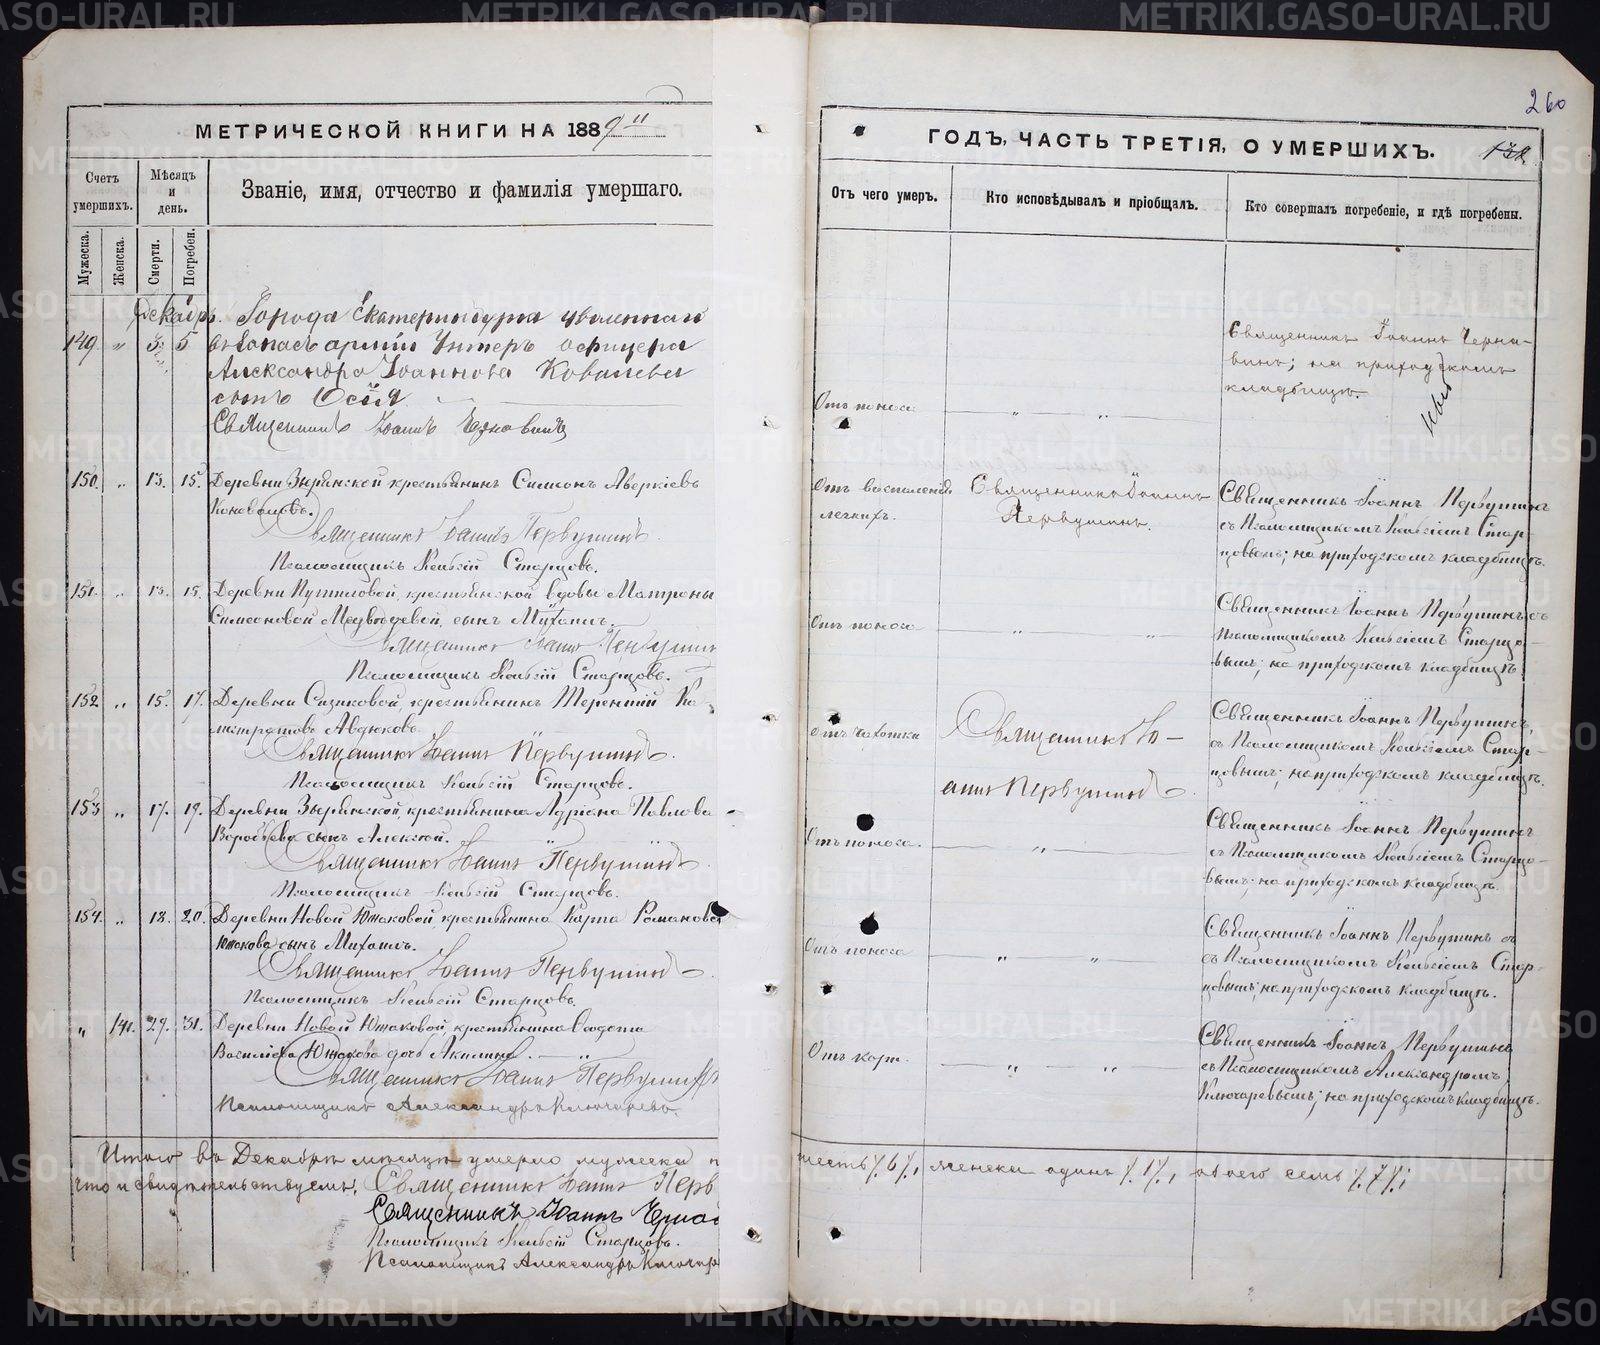 260
МЕТРИЧЕСКОЙ КНИГИ НА 1889й
Счетъ умершихъ.
Мѣсяцъ и день.
Званіе, имя, отчество и фамилія умершаго.
Мужеска.
Женска.
Смерти.
Погребен.
Декабрь. Города Екатеринбурга уволеннаго
149 " 3 5 въ запасъ арміи Унтеръ офицера
Александра Іоаннова Ковалева
сынъ
Священникъ Іоаннъ Черновинъ
150. " 13. 15. Деревни Зырянской крестьянинъ Симеонъ Аверкіевъ
Коноваловъ.
Священникъ Іоаннъ Первушинъ
Псаломщикъ Старцовъ.
151. " 13. 15. Деревни Путиловой, крестьянской вдовы Матроны
Симеоновой Медвѣдевой, сынъ Михаилъ.
Священникъ Іоаннъ Первушинъ
Псаломщикъ Старцовъ.
152 " 15. 17. Деревни крестьянинъ Терентій
Авдюковъ.
Священникъ Іоаннъ Первушинъ
Псаломщикъ Старцовъ.
153 " 17. 19. Деревни Зырянской, крестьянина Адріана Павлова
Воробьева сынъ Алексѣй.
Священникъ Іоаннъ Первушинъ
Псаломщикъ Старцовъ.
154. " 18. 20. Деревни Новой Ютаковой, крестьянина Карпа Романова
Ютакова сынъ Михаилъ.
Священникъ Іоаннъ Первушинъ
Псаломщикъ Старцовъ.
" 141. 29. 31. Деревни Новой Ютаковой, крестьянина Федота
Васильева Ютакова дочь Акилина. "
Священникъ Іоаннъ Первушинъ
Псаломщикъ Александръ Ключаревъ.
Итого въ Декабрѣ мѣсяцѣ умерло мужеска п
что и свидѣтельствуемъ, Священникъ Іоаннъ Перв
Священникъ Іоаннъ Черно
Псаломщикъ Старцовъ.
Псаломщикъ Александръ Ключар
ГОДЪ, ЧАСТЬ ТРЕТІЯ, О УМЕРШИХЪ.
Отъ чего умеръ.
Кто исповѣдывалъ и пріобщалъ.
Кто совершалъ погребеніе, и гдѣ погребены.
Отъ поноса " "
Священникъ Іоаннъ Черно-
винъ; на приходскомъ
кладбищѣ.
Отъ воспаленія
легкихъ.
Священникъ Іоаннъ
Первушинъ.
Священникъ Іоаннъ Первушинъ
съ Псаломщикомъ Стар-
цовымъ; на приходскомъ кладбищѣ.
Отъ поноса " "
Священникъ Іоаннъ Первушинъ съ
Псаломщикомъ Старцо-
вымъ; на приходскомъ кладбищѣ.
Отъ чахотки
Священникъ Іо-
аннъ Первушинъ
Священникъ Іоаннъ Первушинъ,
съ Псаломщикомъ Стар-
цовымъ; на приходскомъ кладбищѣ.
Отъ поноса. "
Священникъ Іоаннъ Первушинъ
съ Псаломщикомъ Старцо-
вымъ; на приходскомъ кладбищѣ.
Отъ поноса " "
Священникъ Іоаннъ Первушинъ съ
съ Псаломщикомъ Стар-
цовымъ; на приходскомъ кладбищѣ.
Отъ кори. " "
Священникъ Іоаннъ Первушинъ
съ Псаломщикомъ Александромъ
Ключаревымъ; на приходскомъ кладбищѣ.
шесть /.6/., женска одинъ /.1/., обоего семь /.7/.;
METRIKI.GASO-URAL.RU